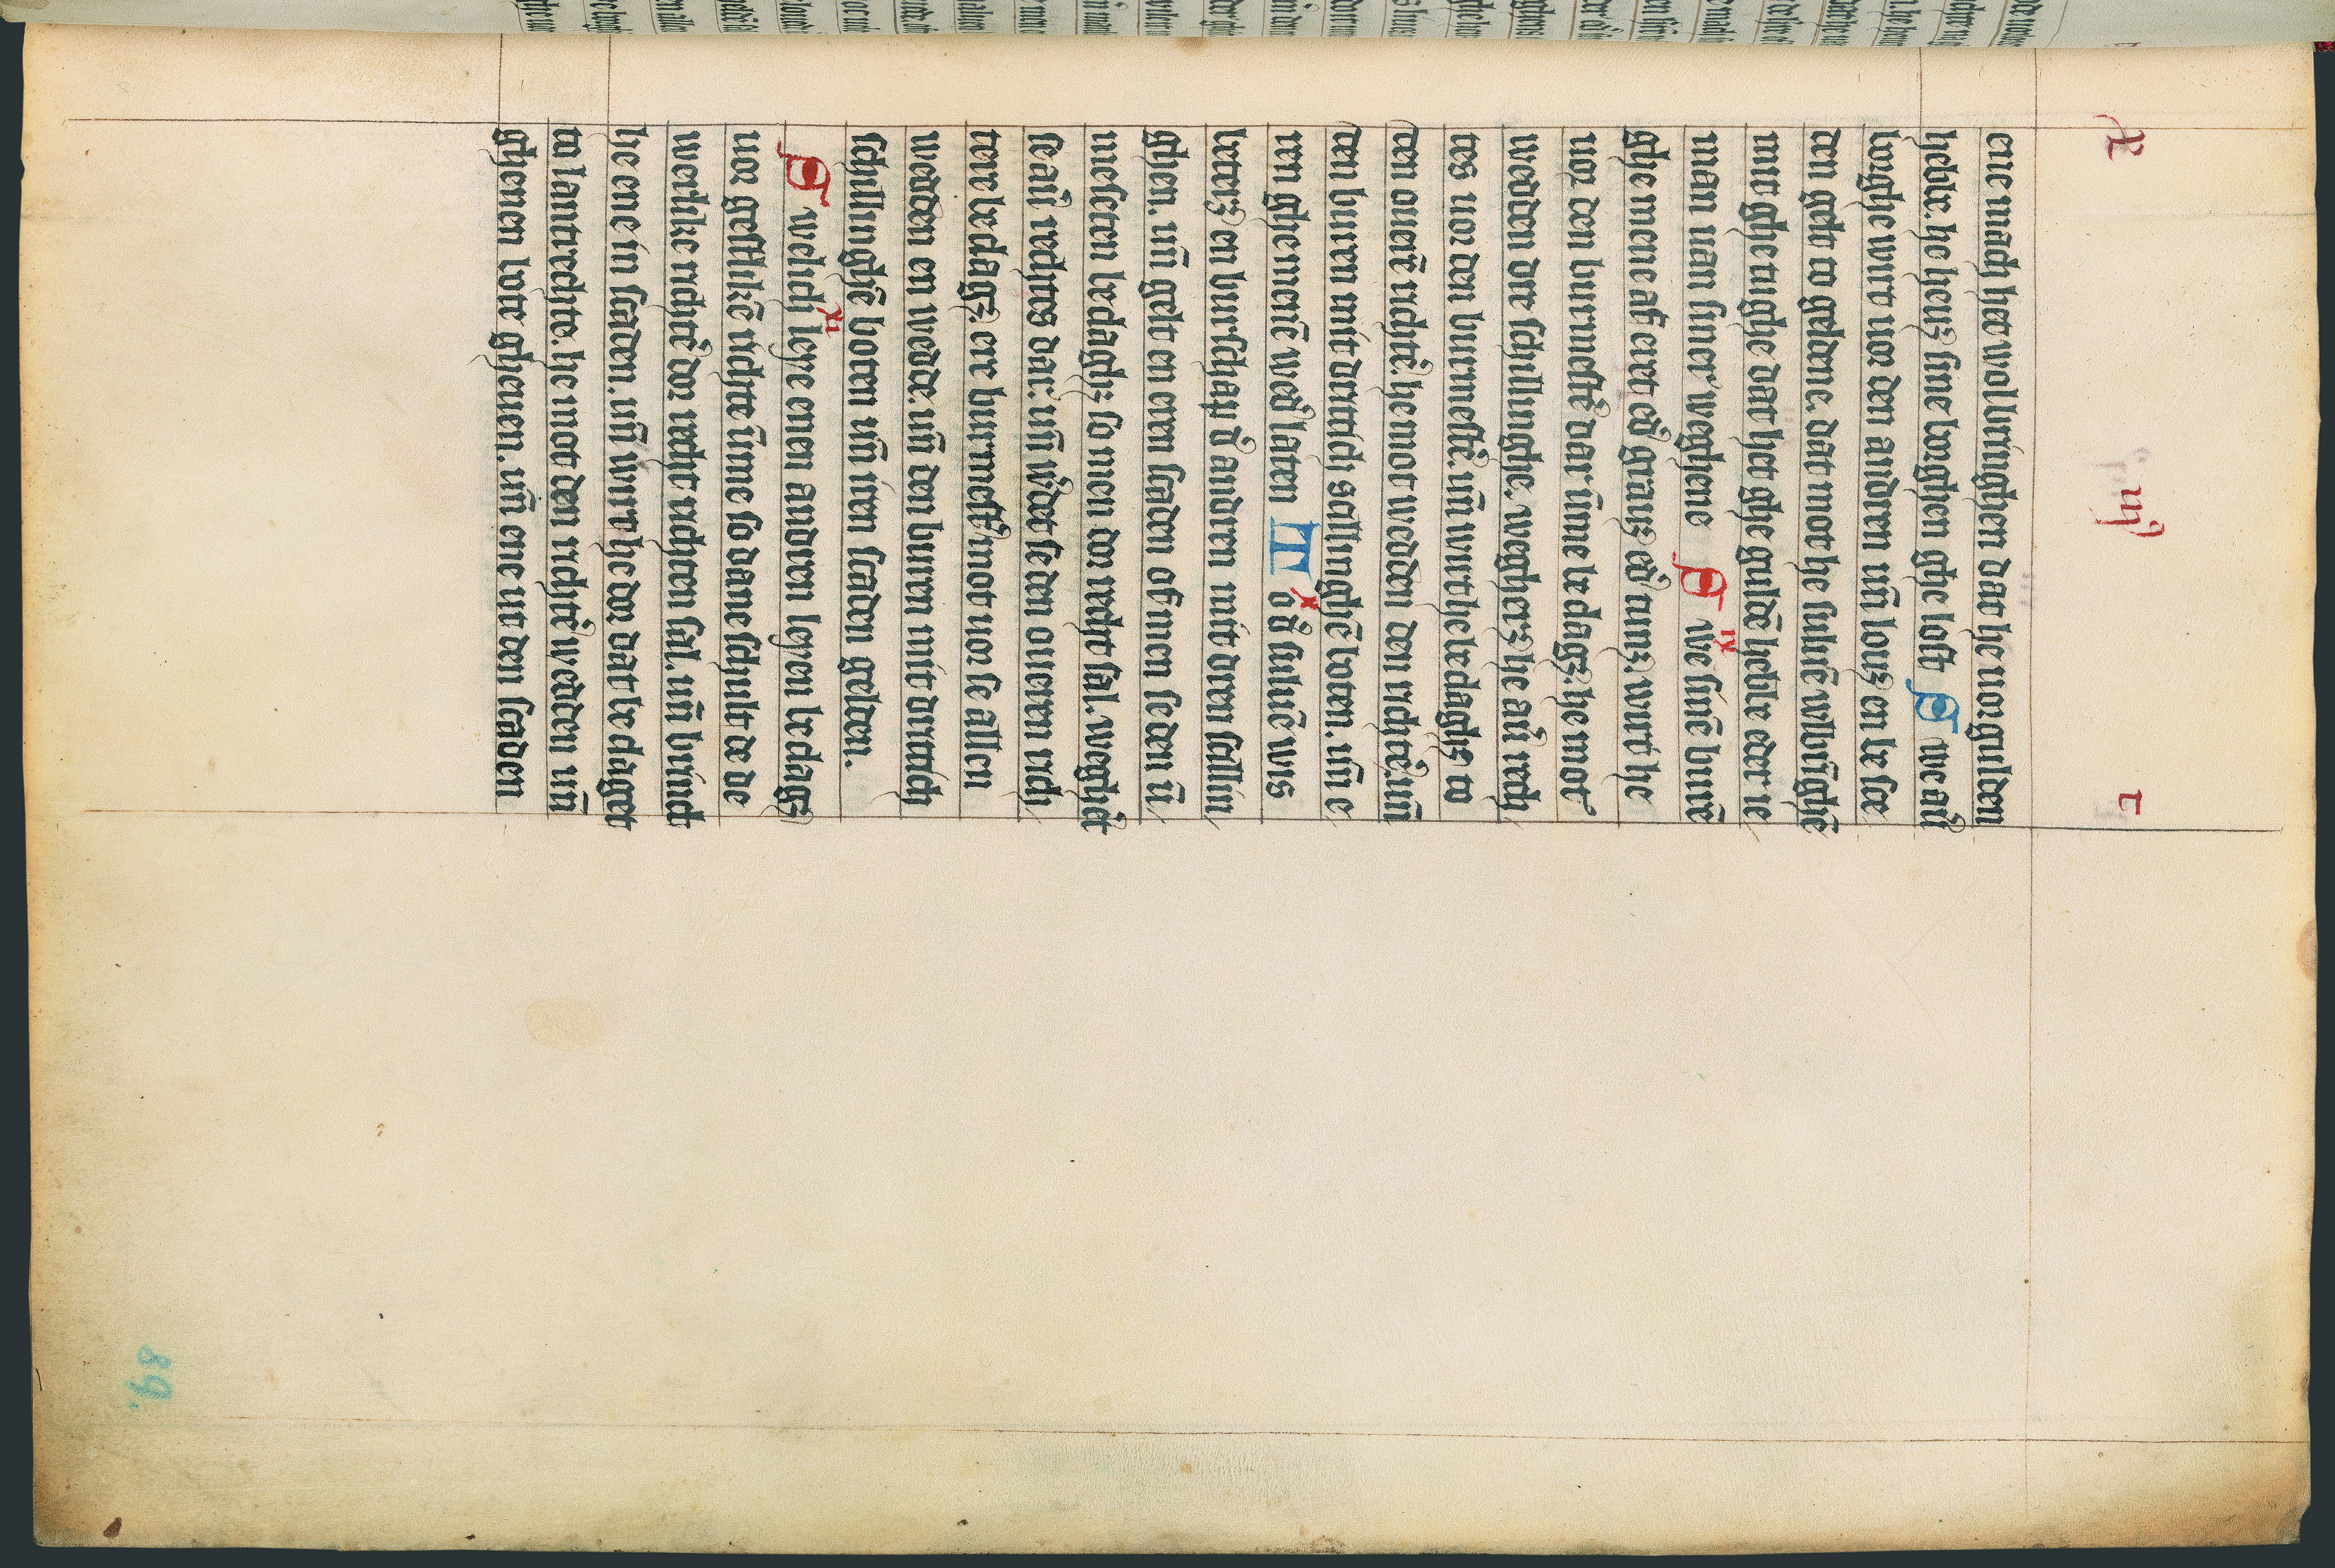 iij
ene mach het volbringhen dat he vorgulden
hebbe. he heuȝ sine borghen ghe lost O we aū
borghe wirt vor den andren vn̄ louȝ en be sce
den gelt to geldene. dat mot he suluē vvlbrīghē
mit ghetughe dat het ghe guldē hebbe eder ie
man van siner weghene O ix we sinē burē
ghe mene af eret eð grauȝ eð tunȝ. wirt he
vor den burmestē dar ūme be clagȝ. he mot
wedden dre schillinghe. weigherȝ he aū rech
tes vor den burmestē. vn̄ wirt he be claghȝ to
den ouerē richtē. he mot wedden den richtē. vn̄
den buren mit drittich scillinghē boten. vn̄ e
ren ghemenē wed laten T x o ð suluē wis
beterȝ en burschap ð andren mit dren scillin
ghen. vn̄ gelt en eren scaden of men se den ū
me seten be claghȝ so men to recht sal. weghīt
se aū rechtes dar. vn̄ wdet se den oueren rich
tere be clagȝ. ere burmestē mot vor se allen
wedden en wedde. vn̄ den buren mit drittich
schillinghē boten vn̄ iren scaden gelden.
O xi welich leye enen andren leyen be clagȝ
vor gestlikē richte ūme so dane schult de de
werlike richtē to recht richten sal. vn̄ brindt
he ene in scaden. vn̄ wirt he dar be claget
to lantrechte. he mot den richtē wedden vn̄
ghenen bote gheuen. vn̄ ene ut den scaden
89.